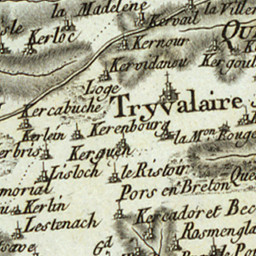 la Madelene
la Viller
isle
Kerloc
Kervail
Kernour
QU
Kervidanou
Kergoul
Loge
Kercabuche
TryvalaIre
Kerlein
Kerenbourg
la Mon Rouge
erbris
Kerguen
Lisloch
le Ristour
Que
morial
Pors en Breton
Kerlin
Lestenach
Kercadoret
Bec
Rosmengla
save
Gd